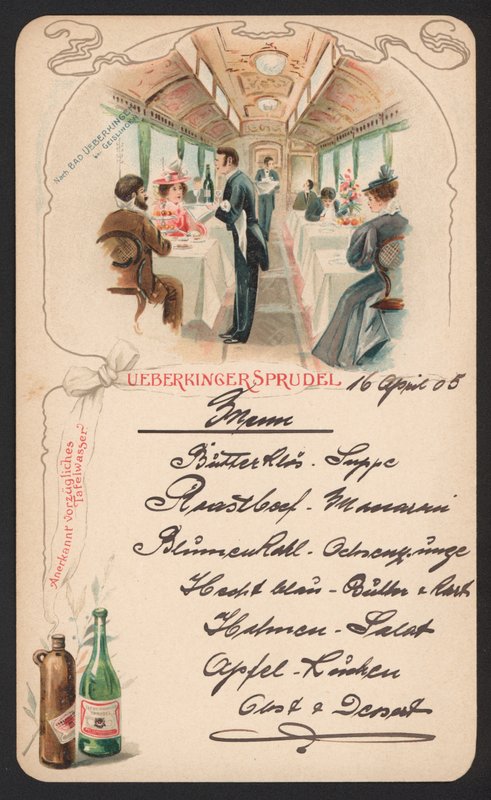 Nach BAD UEBERKINGEN
bei GEISLINGEN
UEBERKINGER SPRUDEL
16 April 05
Menu
Bütterklös - Suppe
Roastbeef - Macaroni
Blümenkohl - Ochsenzünge
Hecht blau - Bütter & Kart
Salat
Apfel - Küchen
Obst & Dessert
Anerkannt vorzügliches
Tafelwasser